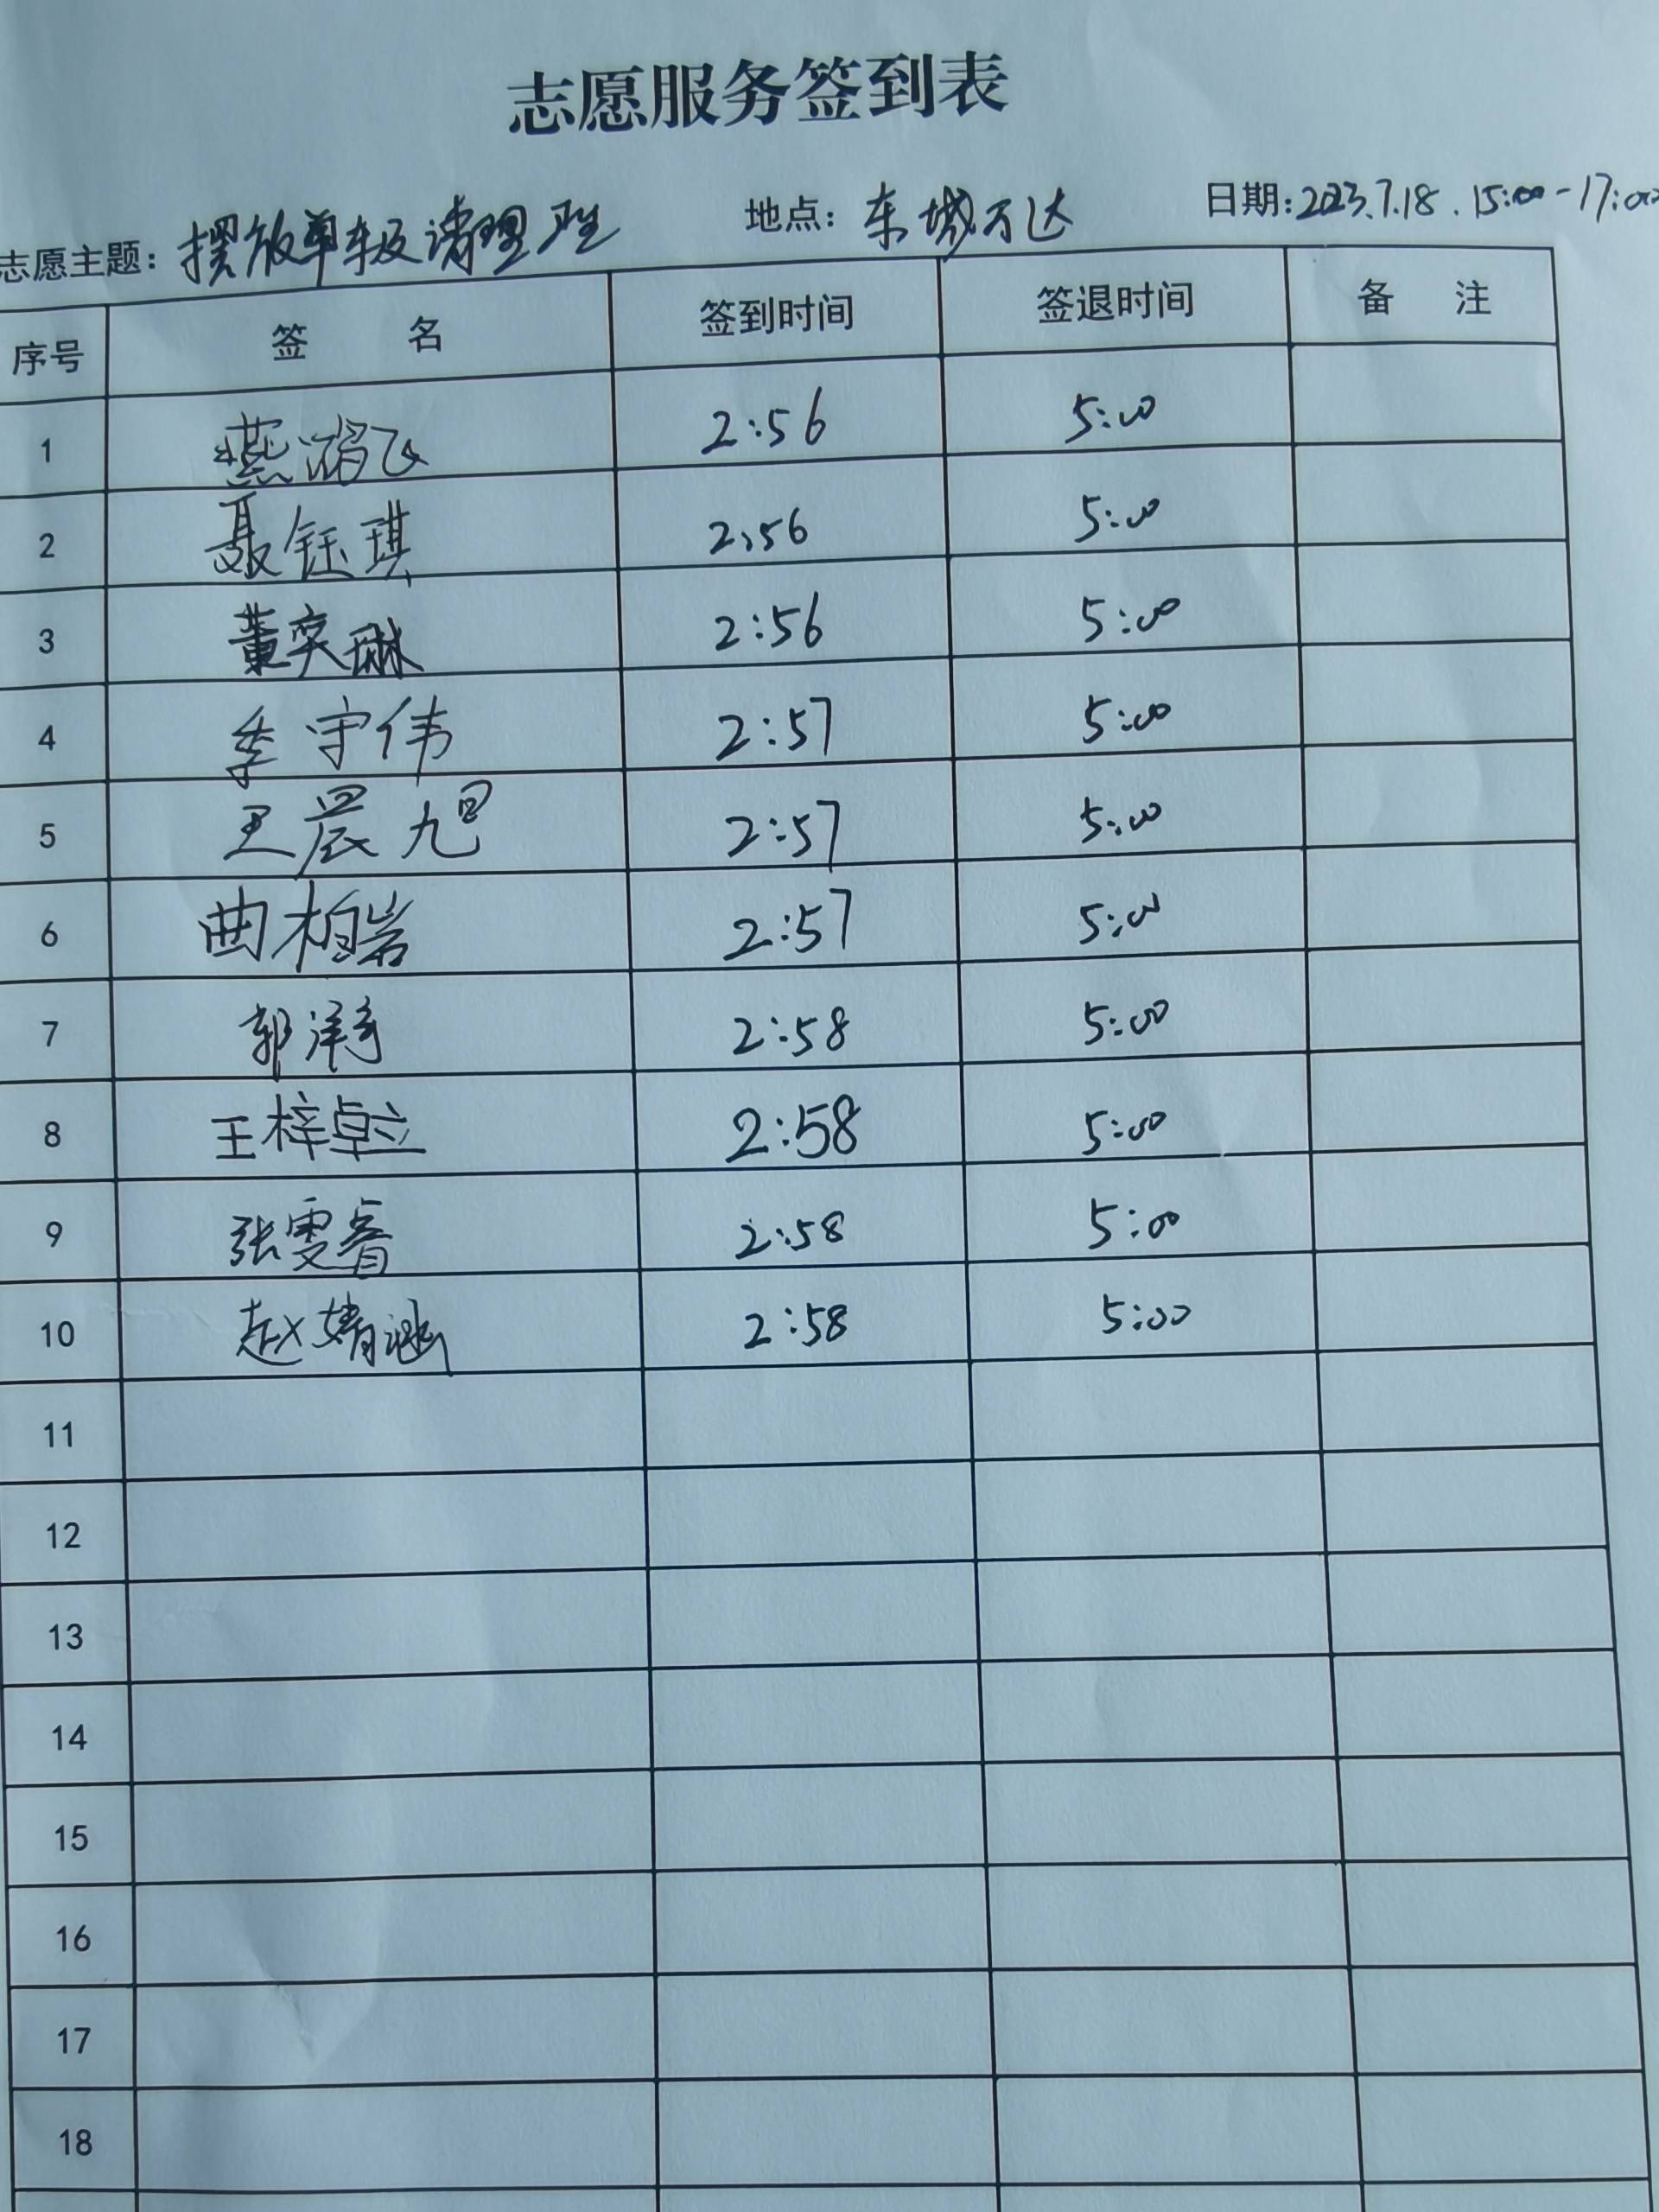 志愿服务签到表
志愿主题：摆放单车及清理
地点：东城万达
日期：2023.7.18. 15:00-17:00
序号 签 名 签到时间 签退时间 备 注
1 燕鸿飞 2:56 5:00
2 聂钰琪 2:56 5:00
3 董奕琳 2:56 5:00
4 季守伟 2:57 5:00
5 王晨旭 2:57 5:00
6 曲柏岩 2:57 5:00
7 郭泽奇 2:58 5:00
8 王梓卓立 2:58 5:00
9 张雯睿 2:58 5:00
10 赵婧涵 2:58 5:00
11
12
13
14
15
16
17
18